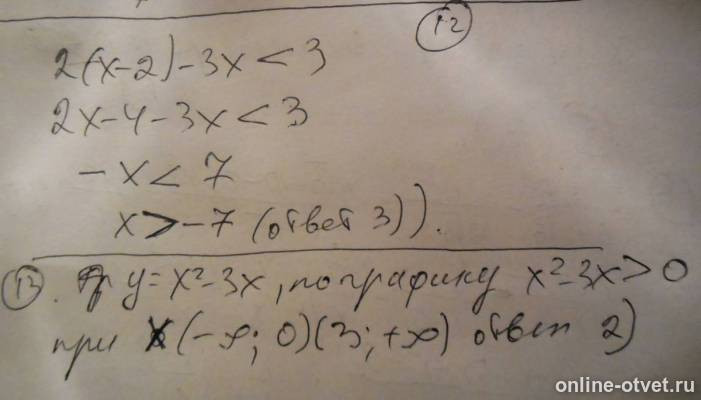 12
2(x-2)-3x<3
2x-4-3x<3
-x<7
x>-7 (ответ 3)).
13. y=x²-3x, по графику x²-3x>0
при x (-∞; 0)(3; +∞) ответ 2)
online-otvet.ru